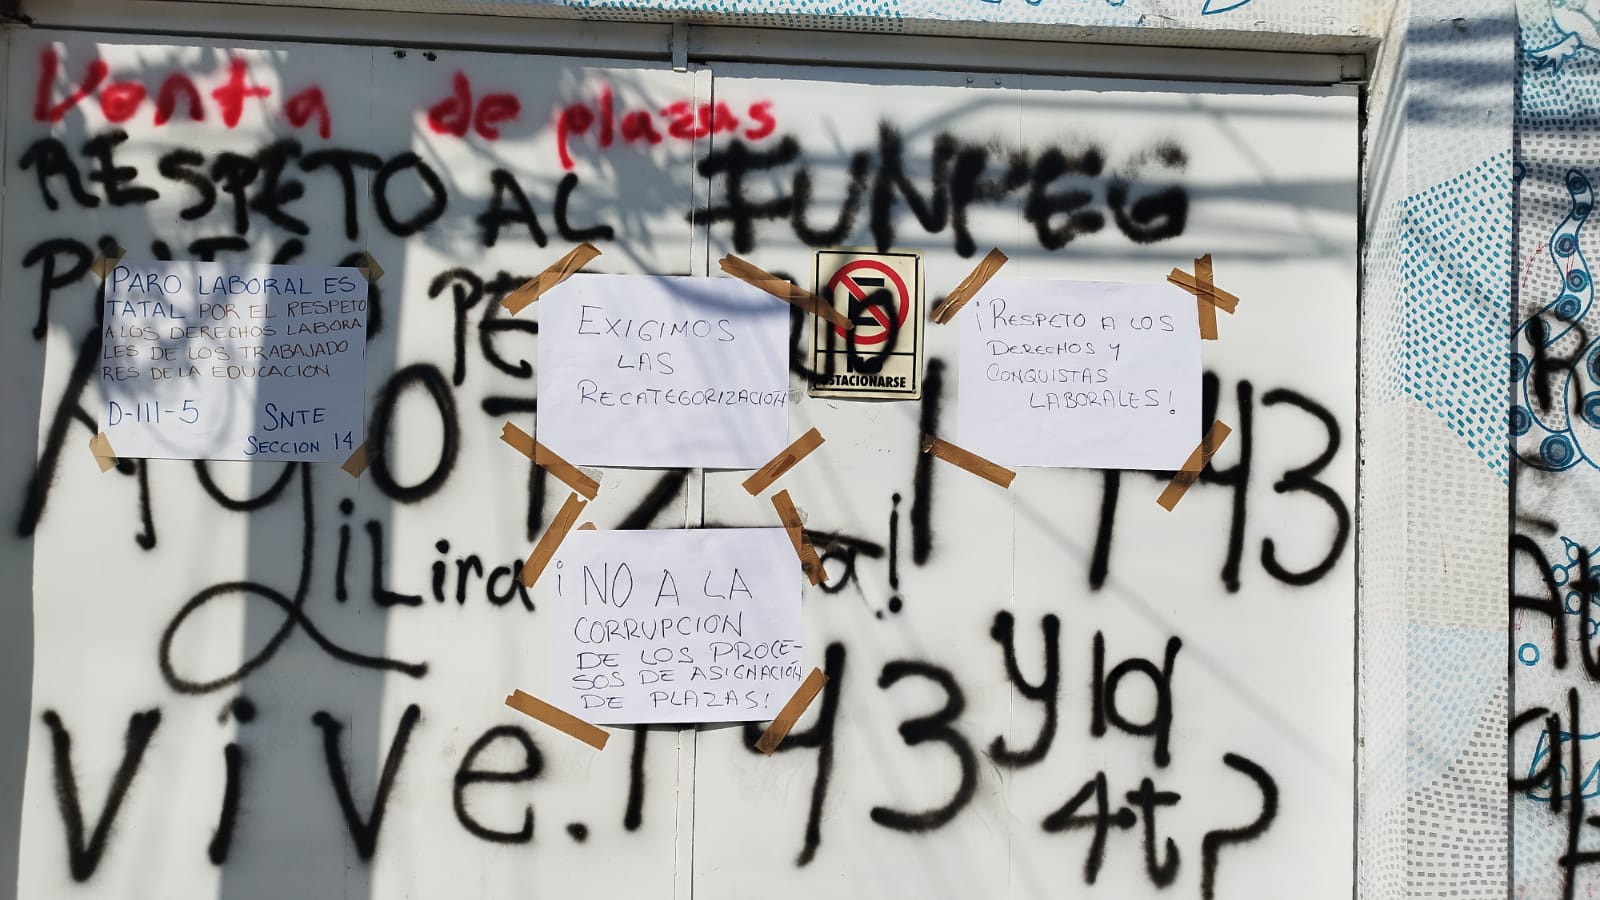 Venta de plazas
RESPETO AL FUNPEG
PARO LABORAL ES
TATAL POR EL RESPETO
A LOS DERECHOS LABORA
LES DE LOS TRABAJADO
RES DE LA EDUCACION
D-III-5 SNTE
SECCION 14
EXIGIMOS
LAS
RECATEGORIZACIÓN
NO
ESTACIONARSE
¡RESPETO A LOS
DERECHOS Y
CONQUISTAS
LABORALES!
43
¡Lira
a!
¡NO A LA
CORRUPCION
DE LOS PROCE-
SOS DE ASIGNACIÓN
DE PLAZAS!
ViVe. 43 y la
4t?